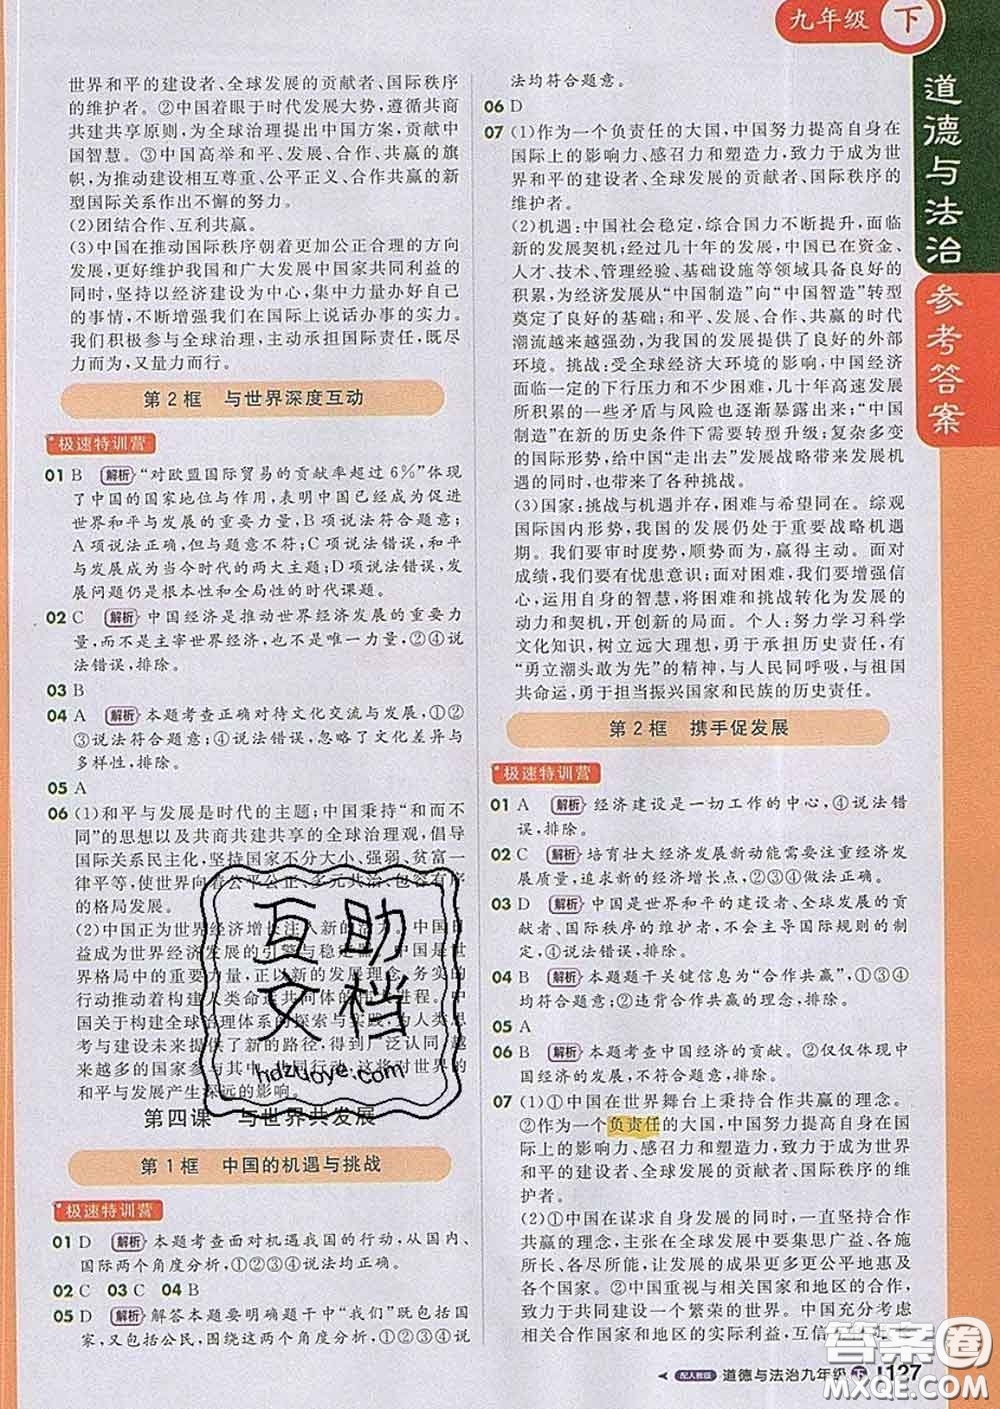 九年级 下
道德与法治
参考答案
世界和平的建设者、全球发展的贡献者、国际秩序
的维护者。②中国着眼于时代发展大势,遵循共商
共建共享原则,为全球治理提出中国方案,贡献中
国智慧。③中国高举和平、发展、合作、共赢的旗
帜,为推动建设相互尊重、公平正义、合作共赢的新
型国际关系作出不懈的努力。
(2)团结合作、互利共赢。
(3)中国在推动国际秩序朝着更加公正合理的方向
发展,更好维护我国和广大发展中国家共同利益的
同时,坚持以经济建设为中心,集中力量办好自己
的事情,不断增强我们在国际上说话办事的实力。
我们积极参与全球治理,主动承担国际责任,既尽
力而为,又量力而行。
第2框 与世界深度互动
极速特训营
01 B 解析 “对欧盟国际贸易的贡献率超过6%”体现
了中国的国家地位与作用,表明中国已经成为促进
世界和平与发展的重要力量,B项说法符合题意;
A项说法正确,但与题意不符;C项说法错误,和平
与发展成为当今时代的两大主题;D项说法错误,发
展问题仍是根本性和全局性的时代课题。
02 C 解析 中国经济是推动世界经济发展的重要力
量,而不是主宰世界经济,也不是唯一力量,②④说
法错误,排除。
03 B
04 A 解析 本题考查正确对待文化交流与发展,①②
③说法符合题意;④说法错误,忽略了文化差异与
多样性,排除。
05 A
06 (1)和平与发展是时代的主题;中国秉持“和而不
同”的思想以及共商共建共享的全球治理观,倡导
国际关系民主化,坚持国家不分大小、强弱、贫富一
律平等,使世界向着公平公正、多元共治、包容有序
的格局发展。
(2)中国正为世界经济增长注入新的活力。中国日
益成为世界经济发展的引擎与稳定器。中国是世
界格局中的重要力量,正以新的发展理念、务实的
行动推动着构建人类命运共同体的历史进程。中
国关于构建全球治理体系的探索与实践,为人类思
考与建设未来提供了新的路径,得到了广泛认同,越
来越多的国家参与其中,共同行动,这将对世界的
和平与发展产生深远的影响。
第四课 与世界共发展
第1框 中国的机遇与挑战
极速特训营
01 D 解析 本题考查面对机遇我国的行动,从国内、
国际两个角度分析,①②③④说法均正确。
02 C 03 C 04 B
05 D 解析 解答本题要明确题干中“我们”既包括国
家,又包括公民,围绕这两个角度分析,①②③④说
法均符合题意。
06 D
07 (1)作为一个负责任的大国,中国努力提高自身在
国际上的影响力、感召力和塑造力,致力于成为世
界和平的建设者、全球发展的贡献者、国际秩序的
维护者。
(2)机遇:中国社会稳定,综合国力不断提升,面临
新的发展契机;经过几十年的发展,中国已在资金、
人才、技术、管理经验、基础设施等领域具备良好的
积累,为经济发展从“中国制造”向“中国智造”转型
奠定了良好的基础;和平、发展、合作、共赢的时代
潮流越来越强劲,为我国的发展提供了良好的外部
环境。挑战:受全球经济大环境的影响,中国经济
面临一定的下行压力和不确定性,几十年高速发展
所积累的一些矛盾与风险也逐渐暴露出来;“中国
制造”在新的历史条件下需要转型升级;复杂多变
的国际形势,给中国“走出去”发展带来发展机遇
的同时,也带来了各种挑战。
(3)国家:挑战与机遇并存,困难与希望同在。综观
国际国内形势,我国的发展仍处于重要战略机遇
期。我们要审时度势,顺势而为,赢得主动。面对
成绩,我们要有忧患意识;面对困难,我们要增强信
心,运用自身的智慧,将困难和挑战转化为发展的
动力和契机,开创新的局面。个人:努力学习科学
文化知识,树立远大理想,勇于承担历史责任,有
“勇立潮头敢为先”的精神,与人民同呼吸,与祖国
共命运,勇于担当振兴国家和民族的历史责任。
第2框 携手促发展
极速特训营
01 A 解析 经济建设是一切工作的中心,④说法错
误,排除。
02 C 解析 培育壮大经济发展新动能需要注重经济发
展质量,追求新的经济增长点,①②③做法正确。
03 D 解析 中国是世界和平的建设者、全球发展的贡
献者、国际秩序的维护者,不会主导国际规则的制
定,②说法错误,排除。
04 B 解析 本题题干关键信息为“合作共赢”,①③④
均符合题意;②违背合作共赢的理念,排除。
05 A
06 B 解析 本题考查中国经济的贡献。②仅仅体现中
国经济的发展,不符合题意,排除。
07 (1)①中国在世界舞台上秉持合作共赢的理念。
②作为一个负责任的大国,中国努力提高自身在国
际上的影响力、感召力和塑造力,致力于成为世界
和平的建设者、全球发展的贡献者、国际秩序的维
护者。
(2)①中国在谋求自身发展的同时,一直坚持合作
共赢的理念,主张在全球发展中要集思广益、各施
所长、各尽所能,让发展的成果更多更公平地惠及
各个国家。②中国重视与相关国家和地区的合作,
致力于共同建设一个繁荣的世界。中国充分考虑
相关合作国家和地区的实际利益,互信
互助文档
hdzuoye.com
配人教版 道德与法治九年级 下 127
答案圈
MXQE.COM